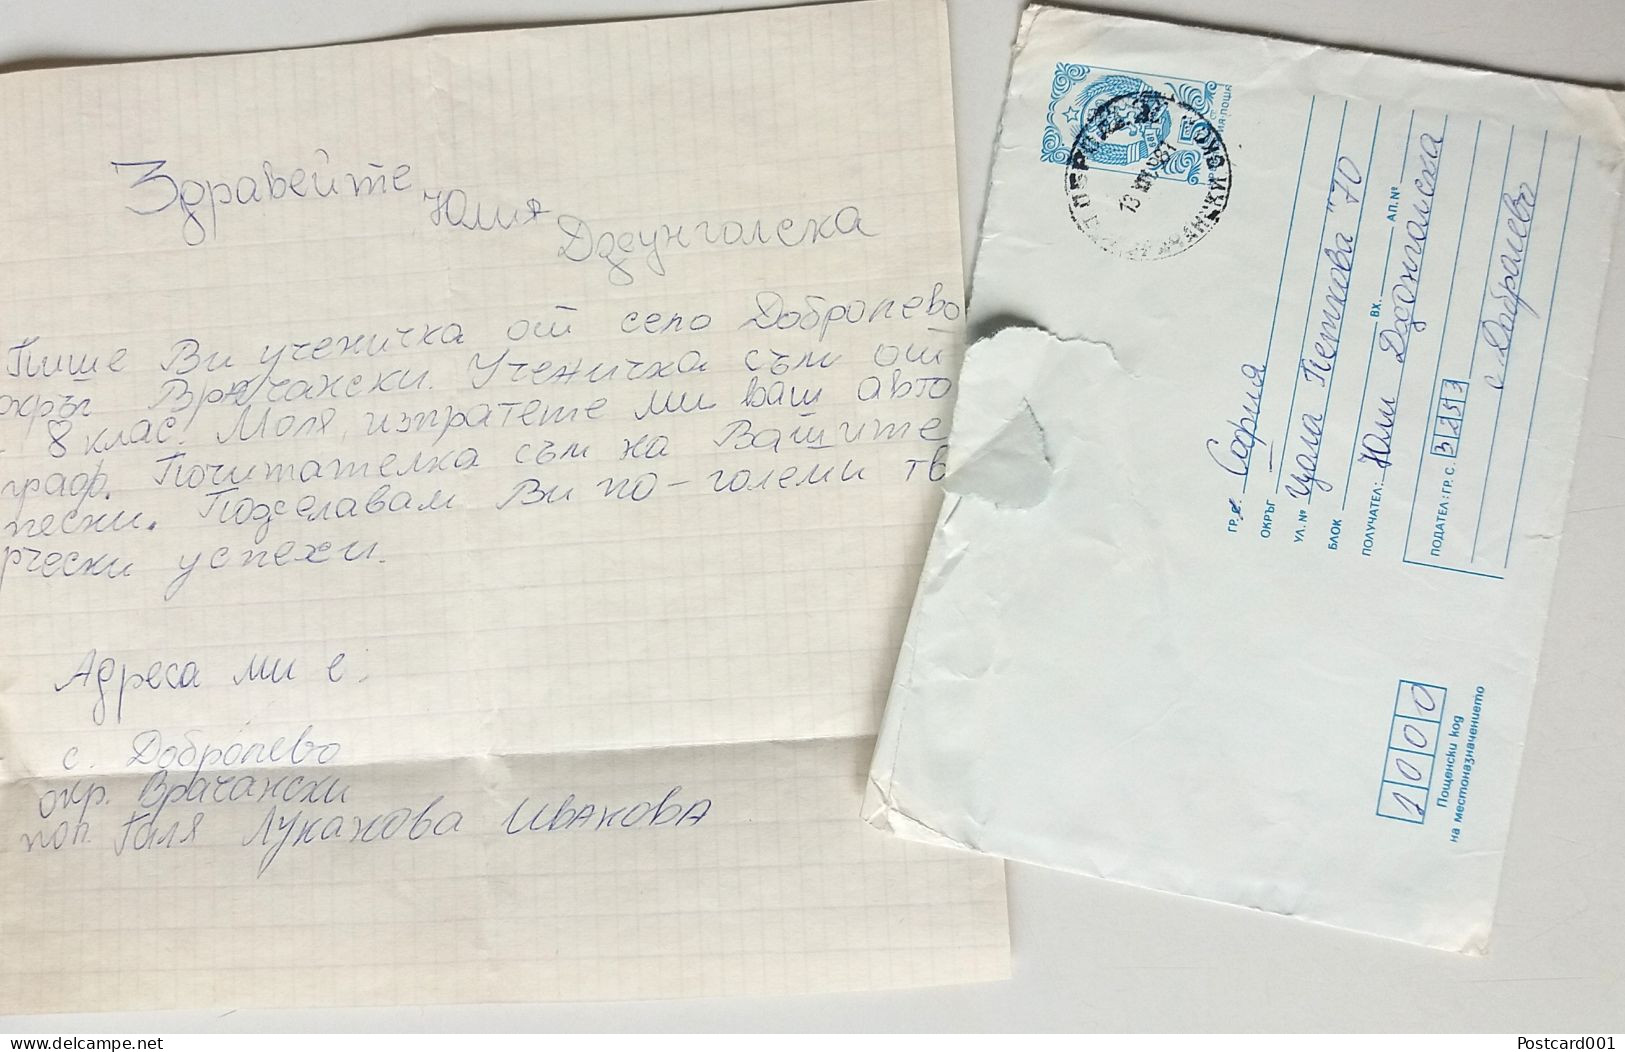 Здравейте
Юлия
Додунголска
Пише Ви ученичка от село Добролево
окръг Врачански. Ученичка съм от
8 клас. Моля, изпратете ми ваш авто
граф. Почитателка съм на Вашите
песни. Подзелавам Ви по-големи тв
рчески успехи.
Адреса ми е:
с. Добролево
окр. Врачански
пол. Галя Луканова Иванова
13 1981
5 СТ
ГР. София
ОКРЪГ
УЛ. № Цола Петкова "70
БЛОК ВХ. АП. №
ПОЛУЧАТЕЛ: Юли Додонголска
ПОДАТЕЛ: ГР. С. 3253
с. Дабралево
1000
Пощенски код
на местоназначението
delcampe.net
Postcard001